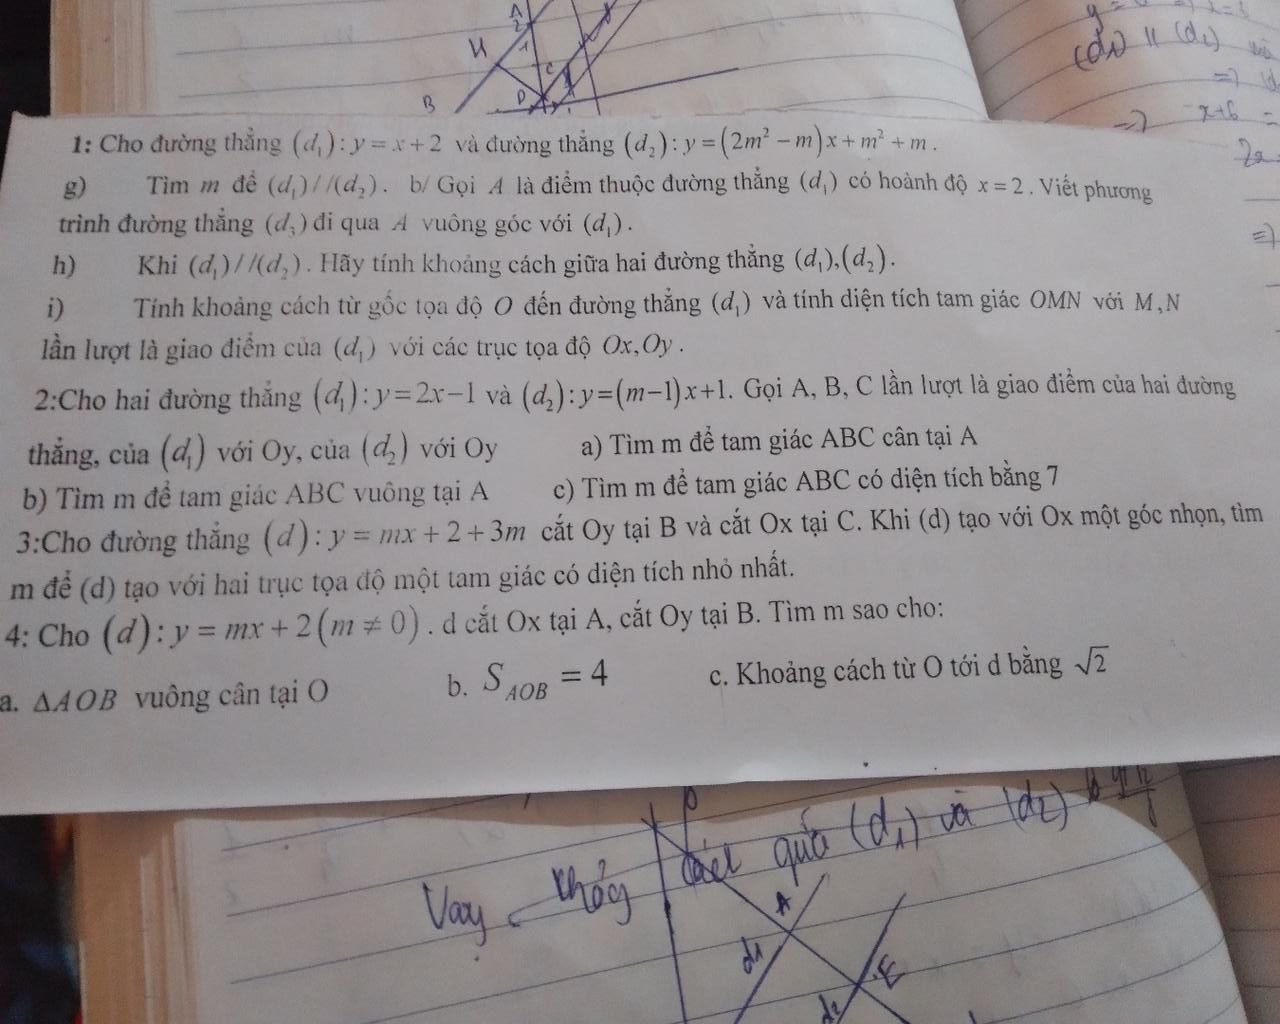 A
H
B
D
C
(d₁) // (d₂)
-x+6 =
1: Cho đường thẳng (d₁): y = x + 2 và đường thẳng (d₂): y = (2m² − m)x + m² + m.
g) Tìm m để (d₁)//(d₂). b/ Gọi A là điểm thuộc đường thẳng (d₁) có hoành độ x = 2. Viết phương
trình đường thẳng (d₃) đi qua A vuông góc với (d₁).
h) Khi (d₁)//(d₂). Hãy tính khoảng cách giữa hai đường thẳng (d₁),(d₂).
i) Tính khoảng cách từ gốc tọa độ O đến đường thẳng (d₁) và tính diện tích tam giác OMN với M,N
lần lượt là giao điểm của (d₁) với các trục tọa độ Ox,Oy.
2:Cho hai đường thẳng (d₁): y=2x−1 và (d₂): y=(m−1)x+1. Gọi A, B, C lần lượt là giao điểm của hai đường
thẳng, của (d₁) với Oy, của (d₂) với Oy a) Tìm m để tam giác ABC cân tại A
b) Tìm m để tam giác ABC vuông tại A c) Tìm m để tam giác ABC có diện tích bằng 7
3:Cho đường thẳng (d): y = mx + 2 + 3m cắt Oy tại B và cắt Ox tại C. Khi (d) tạo với Ox một góc nhọn, tìm
m để (d) tạo với hai trục tọa độ một tam giác có diện tích nhỏ nhất.
4: Cho (d): y = mx + 2(m ≠ 0). d cắt Ox tại A, cắt Oy tại B. Tìm m sao cho:
a. ΔAOB vuông cân tại O b. S_AOB = 4 c. Khoảng cách từ O tới d bằng √2
Vay khỏg (d₁) và (d₂)
A
d₁
E
d₂